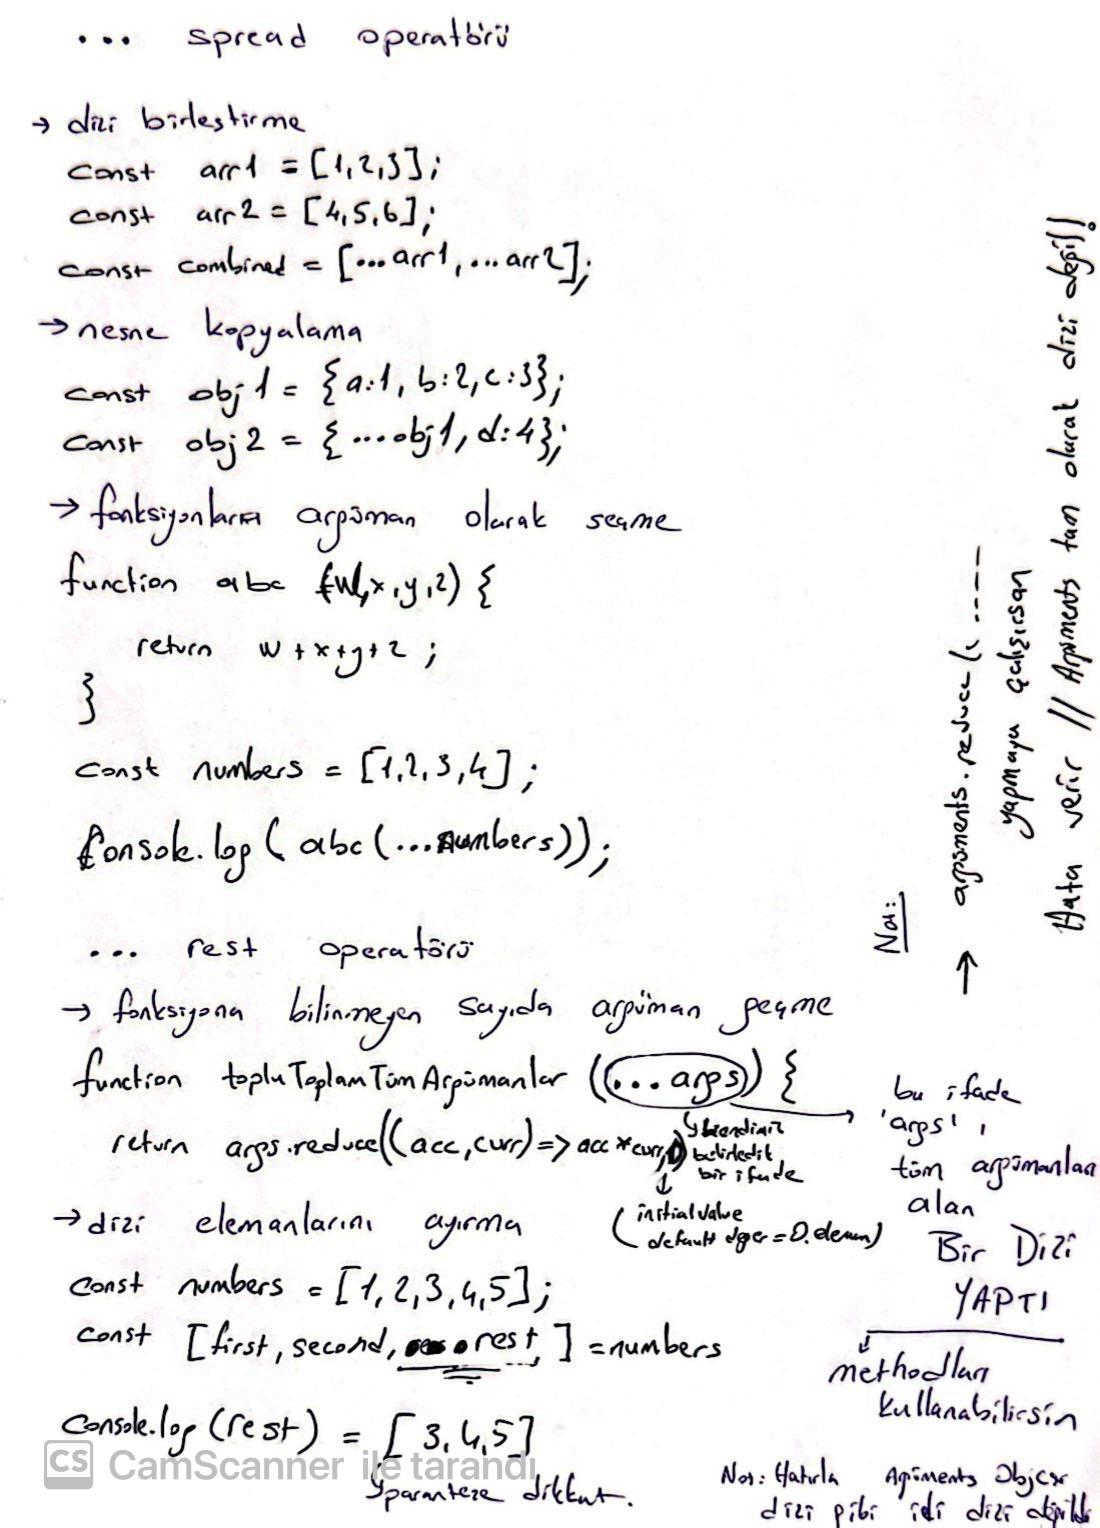 ... spread operatörü
→ dizi birleştirme
const arr1 = [1,2,3];
const arr2 = [4,5,6];
const combined = [...arr1, ...arr2];
→ nesne kopyalama
const obj1 = {a:1, b:2, c:3};
const obj2 = {...obj1, d:4};
→ fonksiyonlara argüman olarak seçme
function abc (w,x,y,z) {
return w+x+y+z;
}
const numbers = [1,2,3,4];
console.log(abc(...numbers));
... rest operatörü
→ fonksiyona bilinmeyen sayıda argüman geçme
function topluToplamTümArgümanlar (...args) {
return args.reduce((acc,curr)=> acc*curr,0)
↳ kendimiz
belirledik
bir ifade
(initial value
default değer = 0. eleman)
bu ifade
'args',
tüm argümanları
alan
Bir Dizi
YAPTI
methodları
kullanabilirsin
→ dizi elemanlarını ayırma
const numbers = [1,2,3,4,5];
const [first, second, ...rest] = numbers
console.log(rest) = [3,4,5]
↳ paranteze dikkat.
CS CamScanner ile tarandı
Not: Hatırla Agüments Objesi
dizi gibi idi dizi değildi
Not:
→ argüments.reduce((-----
yapmaya çalışırsan
Hata verir // Argüments tam olarak dizi değil!